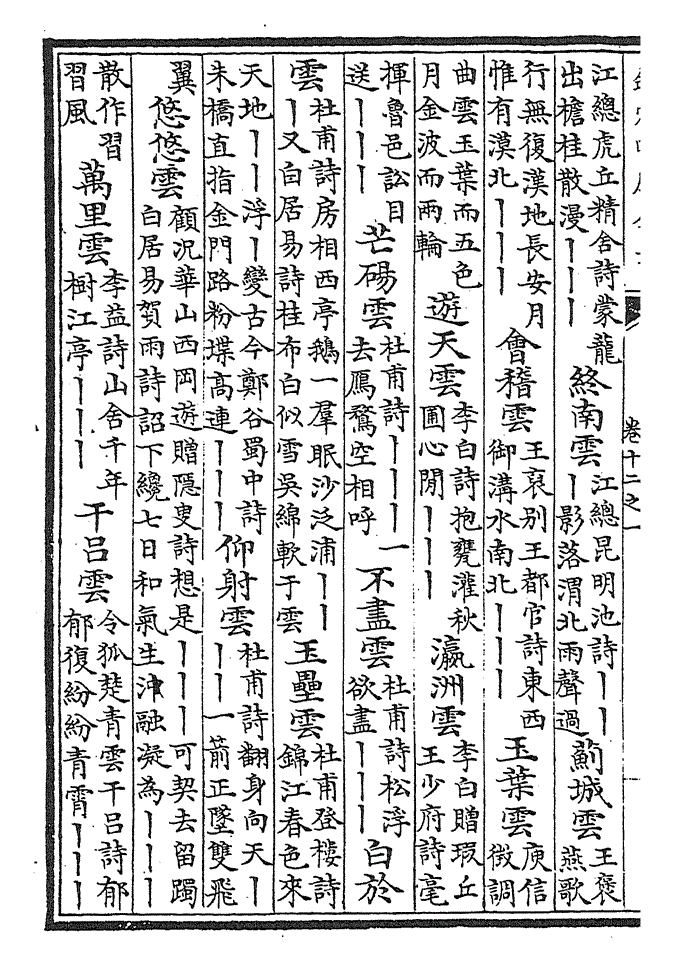 卷十二之一
江總虎丘精舍詩蒙龍出檐桂散漫｜｜｜終南雲江總昆明池詩｜｜｜影落渭北雨聲過薊城雲王褒燕歌
行無復漢地長安月惟有漠北｜｜｜會稽雲王裒別王都官詩東西御溝水南北｜｜｜玉葉雲庾信徵調
曲雲玉葉而五色月金波而兩輪遊天雲李白詩抱甕灌秋圃心閒｜｜｜瀛洲雲李白贈瑕丘王少府詩毫
揮魯邑訟目送｜｜｜芒碭雲杜甫詩｜｜｜一去鴈鶩空相呼不盡雲杜甫詩松浮欲盡｜｜｜白於
雲杜甫詩房相西亭鵝一羣眠沙泛浦｜｜｜又白居易詩桂布白似雪吳綿軟于雲玉壘雲杜甫登樓詩錦江春色來
天地｜｜浮｜變古今鄭谷蜀中詩朱橋直指金門路粉堞高連｜｜｜仰射雲杜甫詩翻身向天｜｜｜一箭正墜雙飛
翼悠悠雲顧況華山西岡遊贈隱叟詩想是｜｜｜可契去留躅白居易賀雨詩詔下纔七日和氣生沖融凝為｜｜｜
散作習習風萬里雲李益詩山舍千年樹江亭｜｜｜干呂雲令狐楚青雲干呂詩郁郁復紛紛青霄｜｜｜